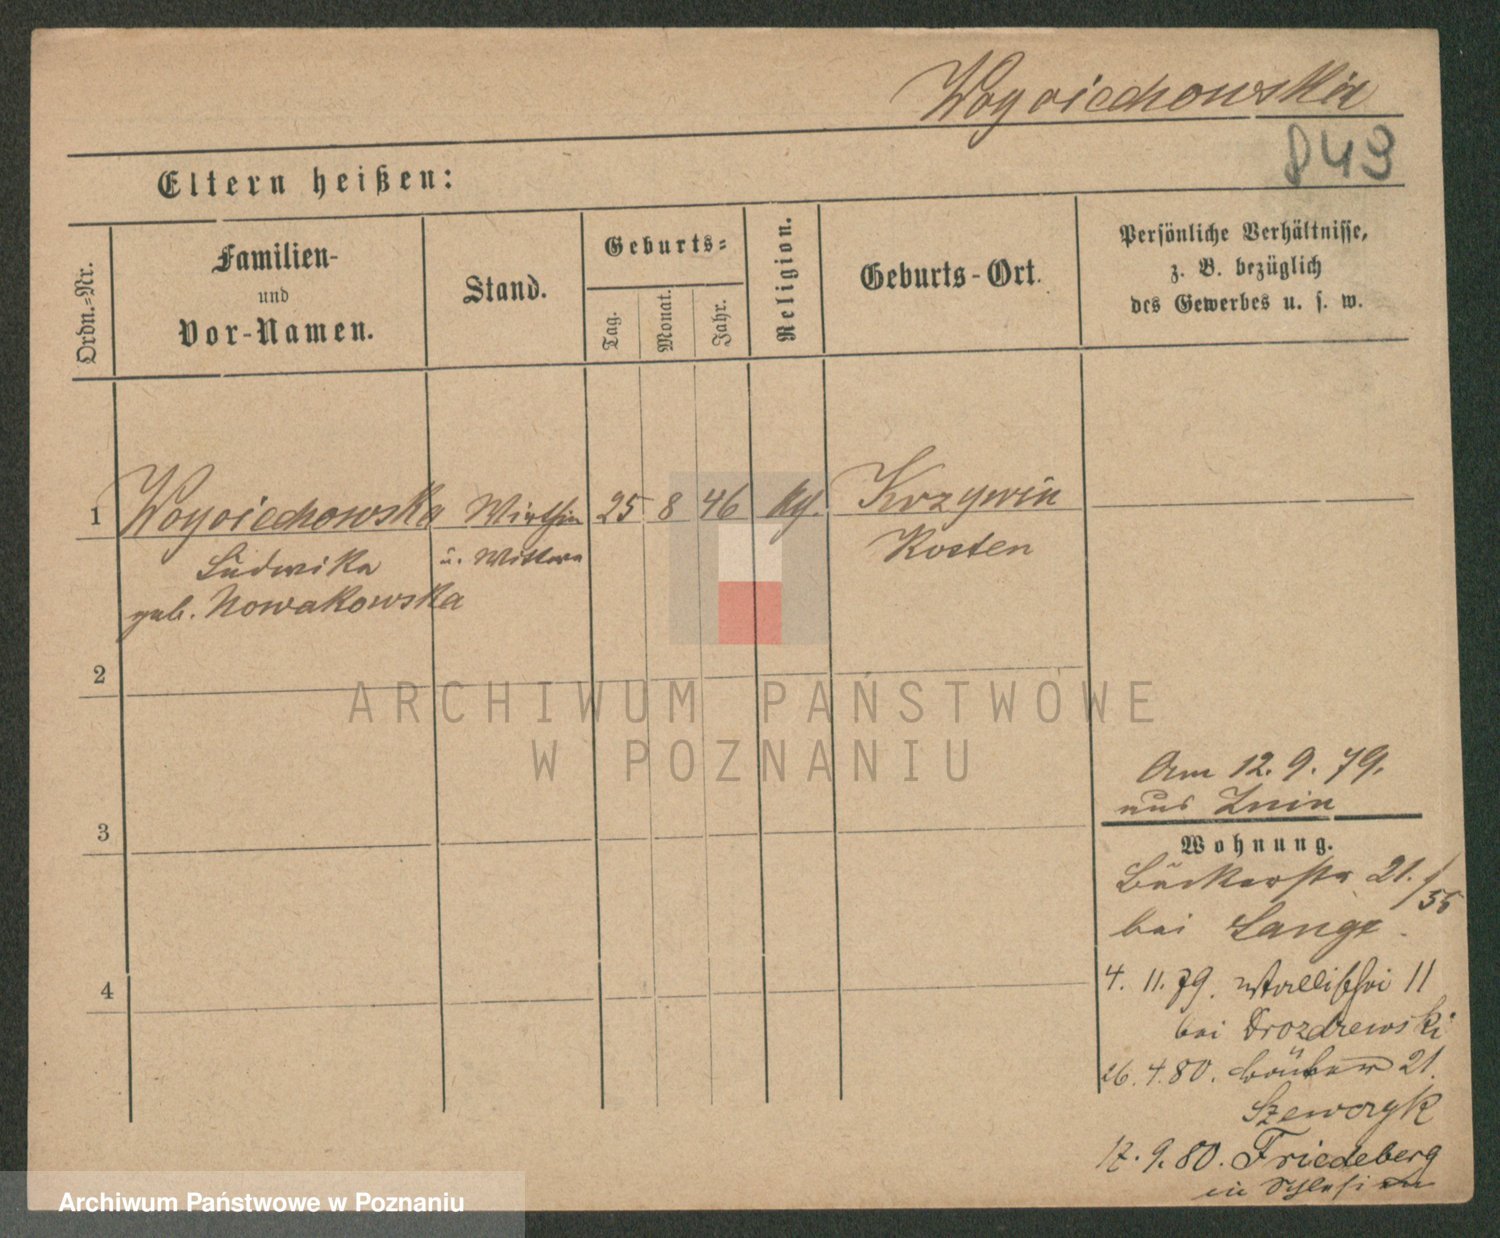 Woyciechowska
849
Eltern heißen:
Ordn.=Nr.
Familien-
und
Vor-Namen.
Stand.
Geburts=
Tag.
Monat.
Jahr.
Religion.
Geburts-Ort.
Persönliche Verhältnisse,
z. B. bezüglich
des Gewerbes u. s. w.
1 Woyciechowska Wirthin 25 8 46 kg. Krzywin
Ludwika u. Wittwe Kosten
geb. Nowakowska
2
ARCHIWUM PAŃSTWOWE
W POZNANIU
Am 12. 9. 79.
aus Znin
3
Wohnung.
Bäckerstr 21./55
bei Lange.
4
4. 11. 79. Wallischei 11
bei Drozdzewski
26. 4. 80. 21.
Szewczyk
17. 9. 80. Friedeberg
in Schlesien
Archiwum Państwowe w Poznaniu